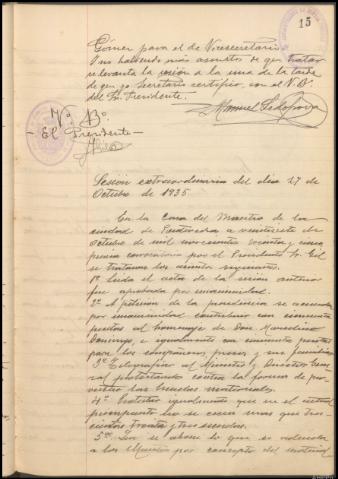 15
Gómez para el de Vicesecretario.
Y no habiendo más asuntos de que tratar
se levanta la sesión a la una de la tarde
de que yo Secretario certifico con el V.º B.º
del Sr. Presidente.
Manuel
Vº. Bº.
- El Presidente -
Sesión extraordinaria del día 27 de
Octubre de 1935
En la Casa del Maestro de la
ciudad de Pontevedra a veintisiete de
octubre de mil novecientos treinta y cinco
previa convocatoria por el Presidente Sr. Gil
se trataron los asuntos siguientes:
1º Leida el acta de la sesión anterior
fue aprobada por unanimidad.
2º A petición de la presidencia se acuerda
por unanimidad contribuir con cincuenta
pesetas al homenaje de Don Marcelino
Domingo, e igualmente con cincuenta pesetas
para los compañeros presos y sus familias
3º Telegrafiar al Ministro y Director Gene-
ral protestando contra la forma de pro-
veer las Escuelas
4º Protestar igualmente que en el actual
presupuesto no se creen mas que tres-
cientas treinta y tres escuelas.
5º Que se abone lo que se adeuda
a los Maestros por concepto del material